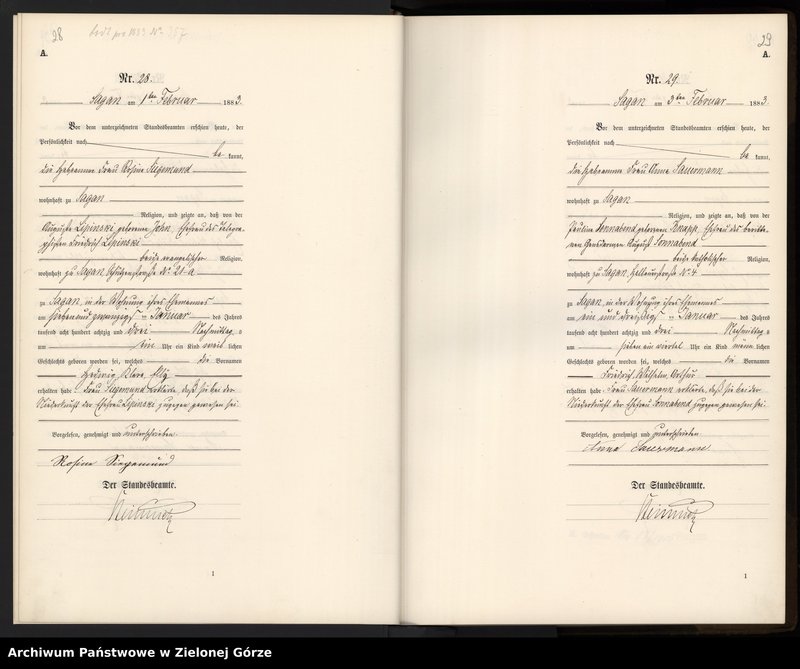 28
A.
Nr. 28.
Sagan am 1ten Februar 1883.
Vor dem unterzeichneten Standesbeamten erschien heute, der
Persönlichkeit nach
be kannt,
die Hebamme Frau Rosine Siegemund
wohnhaft zu Sagan
Religion, und zeigte an, daß von der
Auguste Lipinski geborene John, Ehefrau des
Friedrich Lipinski
beide evangelischer Religion,
wohnhaft zu Sagan No 21 a
zu Sagan, in der Wohnung ihres Ehemannes
am sieben und zwanzigsten Januar des Jahres
tausend acht hundert achtzig und drei Nachmittag s
um ein Uhr ein Kind weib lichen
Geschlechts geboren worden sei, welches die Vornamen
Hedwig Klara
erhalten habe. Frau Siegemund erklärte, daß sie bei der
Niederkunft der Ehefrau Lipinski zugegen gewesen sei.
Vorgelesen, genehmigt und unterschrieben
Rosine Siegemund
Der Standesbeamte.
1
29
A.
Nr. 29.
Sagan am 3ten Februar 1883.
Vor dem unterzeichneten Standesbeamten erschien heute, der
Persönlichkeit nach
be kannt,
die Hebamme Frau Anna Sauermann
wohnhaft zu Sagan
Religion, und zeigte an, daß von der
Pauline Sonnabend geborenen Knapp, Ehefrau des beritte-
nen Gendarmen August Sonnabend
beide katholischer Religion,
wohnhaft zu Sagan No 4
zu Sagan, in der Wohnung ihres Ehemannes
am ein und dreißigsten Januar des Jahres
tausend acht hundert achtzig und drei Nachmittag s
um sieben ein viertel Uhr ein Kind männ lichen
Geschlechts geboren worden sei, welches die Vornamen
Friedrich Wilhelm Arthur
erhalten habe. Frau Sauermann erklärte, daß sie bei der
Niederkunft der Ehefrau Sonnabend zugegen gewesen sei.
Vorgelesen, genehmigt und unterschrieben
Anna Sauermann
Der Standesbeamte.
1
Archiwum Państwowe w Zielonej Górze